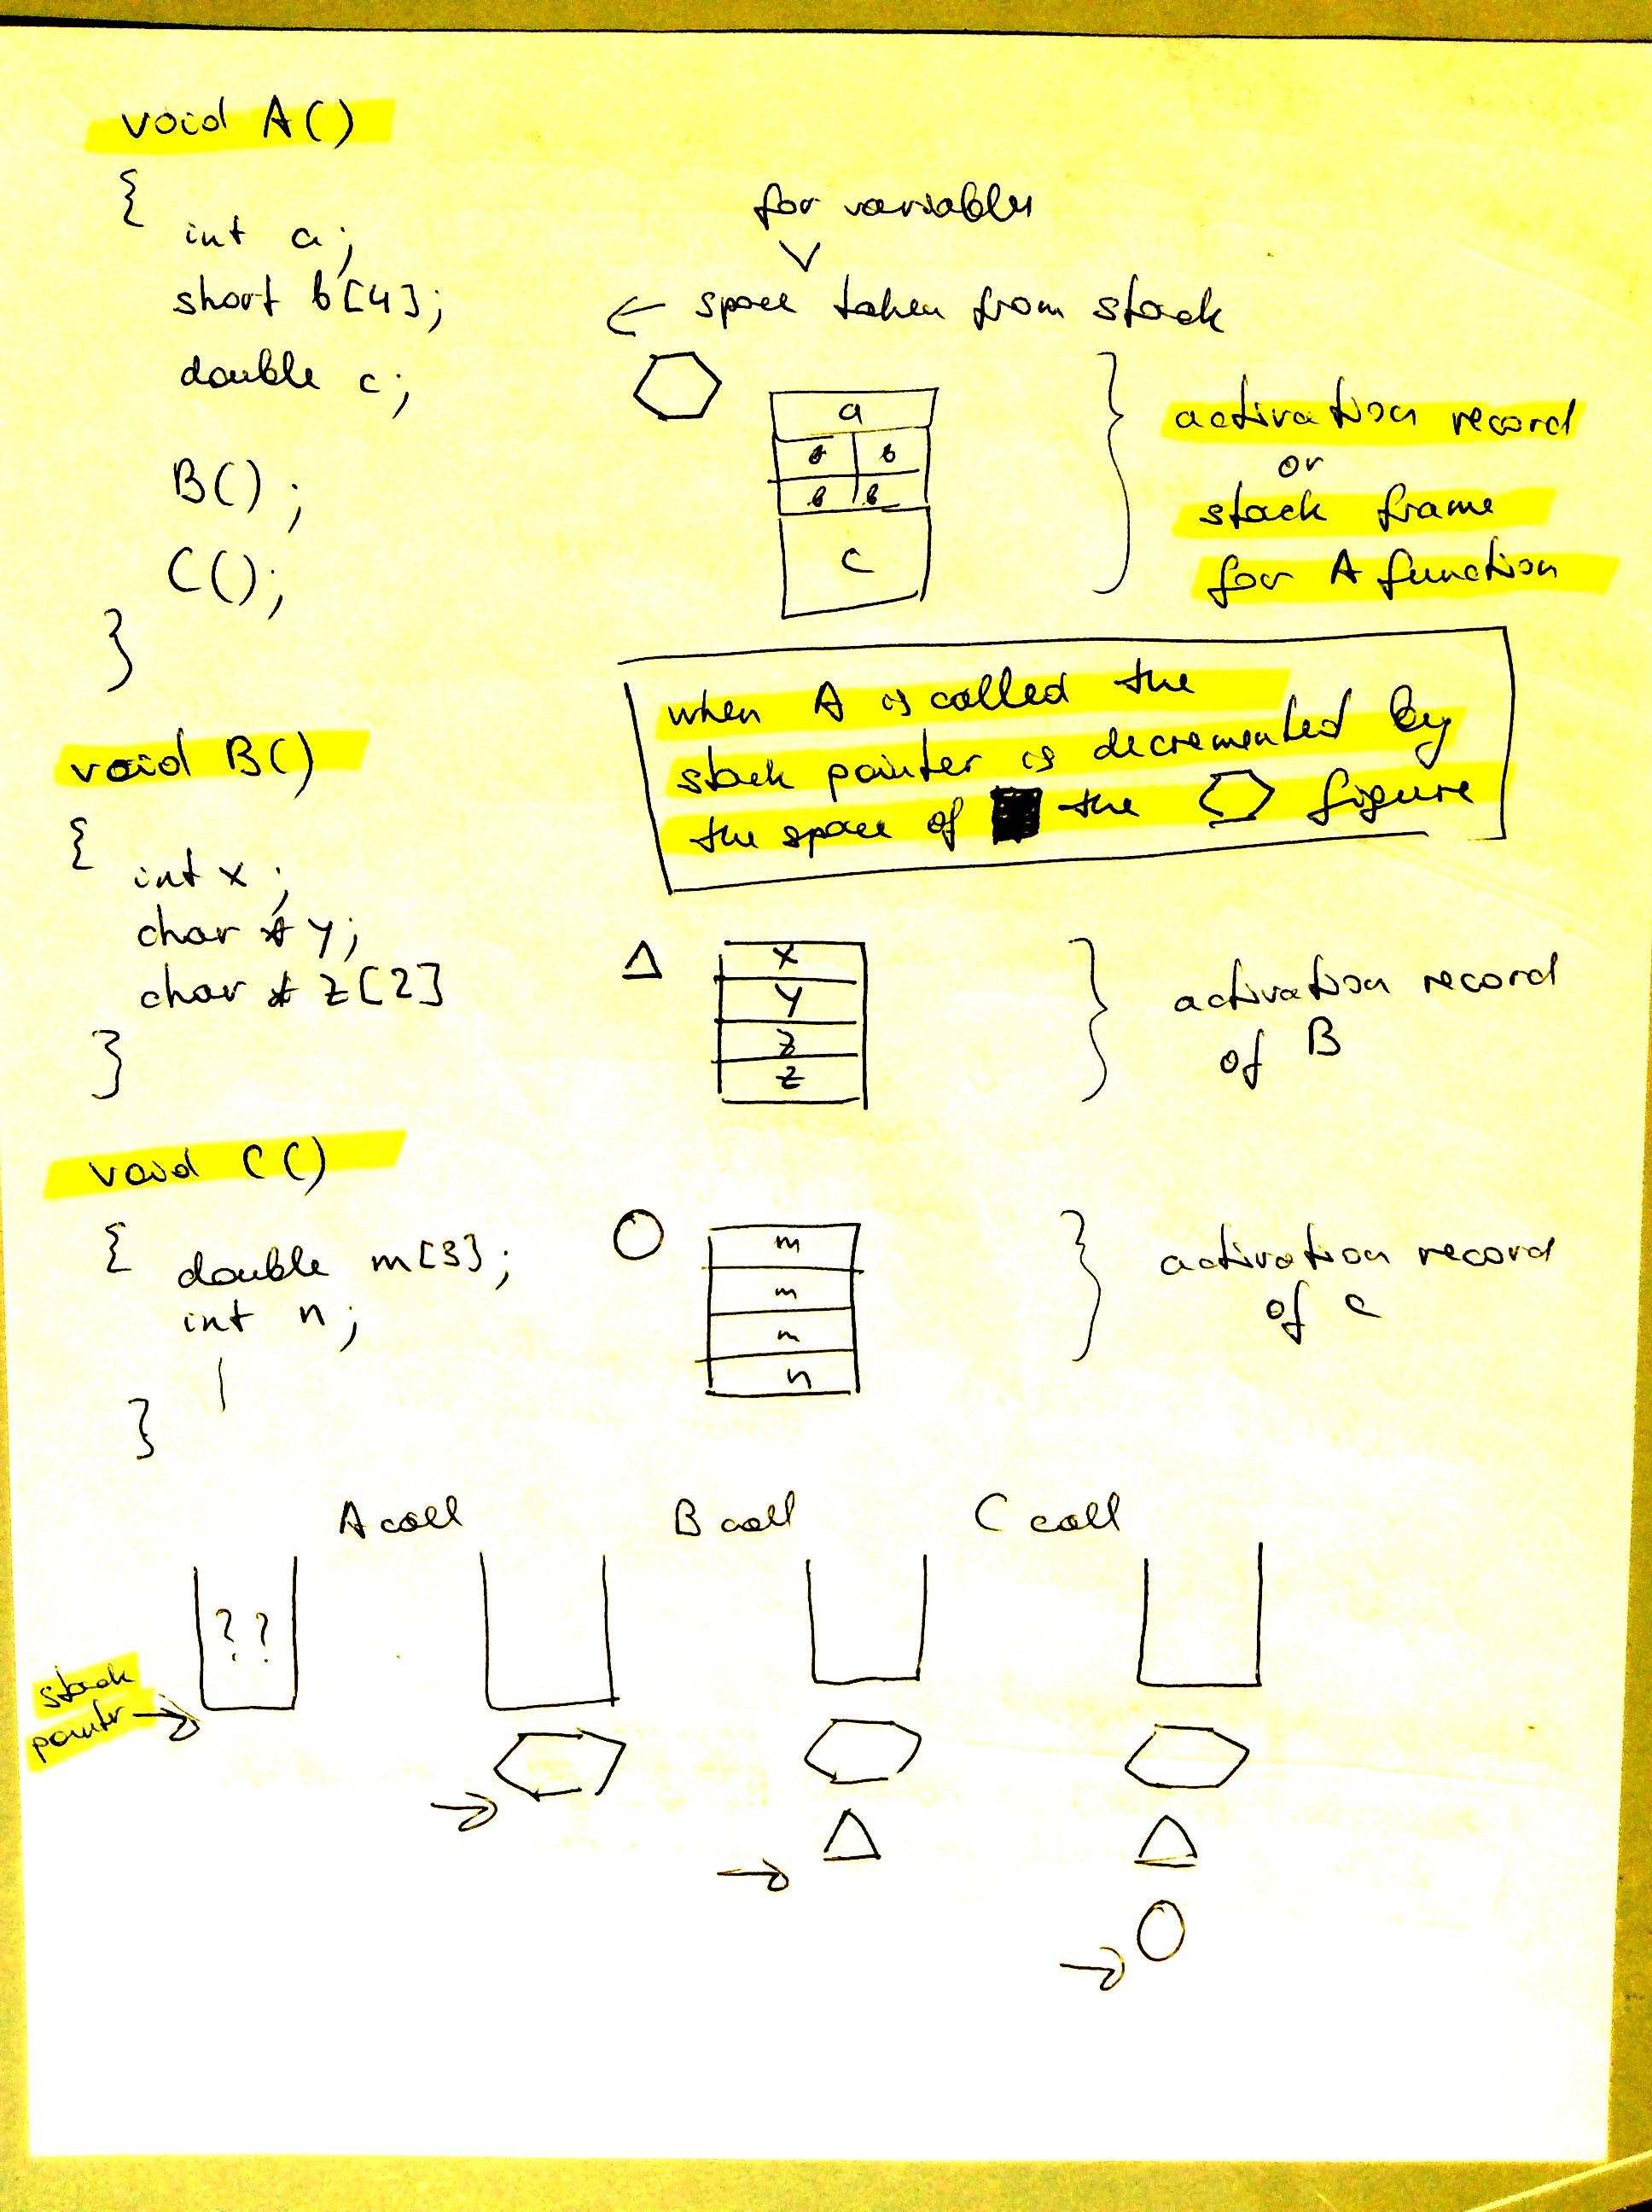 void A()
{
int a;
short b[4];
double c;
B();
C();
}
for variables
← space taken from stack
a
b b
b b
c
activation record
or
stack frame
for A function
when A is called the
stack pointer is decremented by
the space of the figure
void B()
{
int x;
char * y;
char * z[2]
}
x
y
z
z
activation record
of B
void C()
{ double m[3];
int n;
}
m
m
m
n
activation record
of C
A call B call C call
??
stack
pointer →